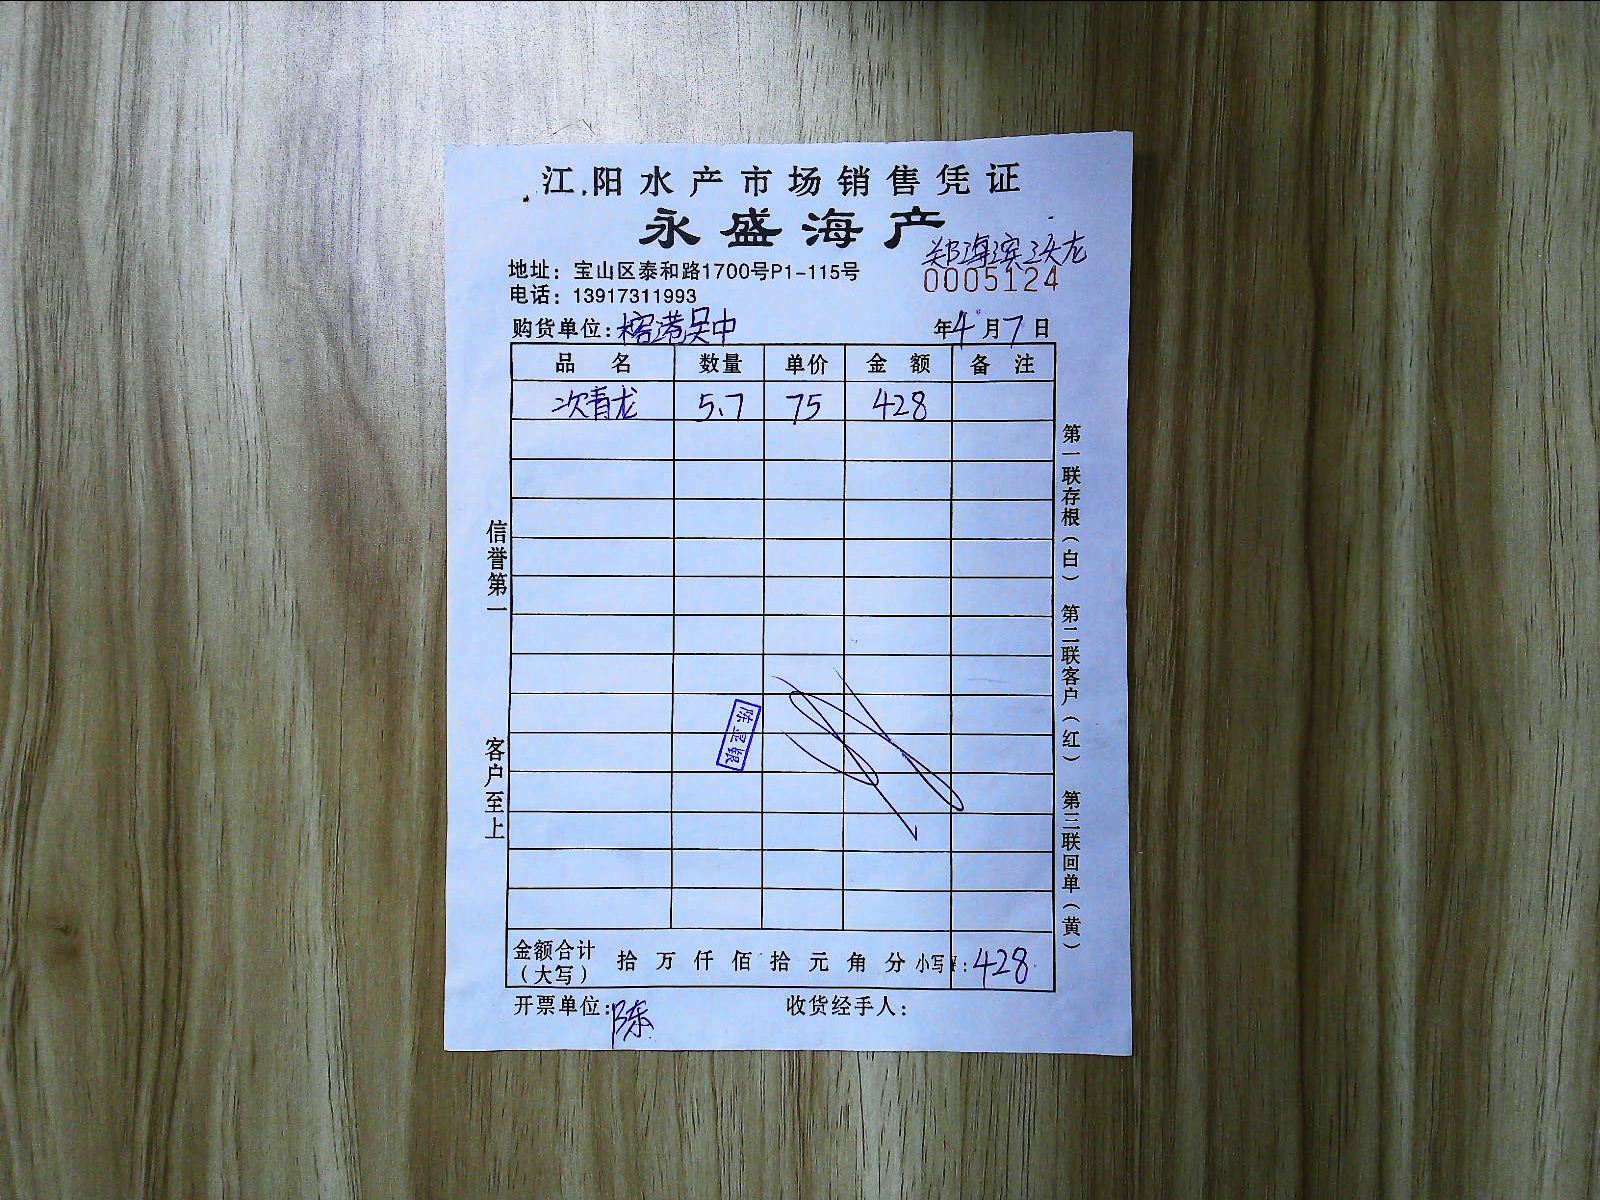 江阳水产市场销售凭证
永盛海产
郑海滨
地址：宝山区泰和路1700号P1-115号
0005124
电话：13917311993
购货单位：榕港吴中
年4月7日
品名 数量 单价 金额 备注
次青龙 5.7 75 428
信誉第一
客户至上
第一联存根（白） 第二联客户（红） 第三联回单（黄）
金额合计（大写） 拾 万 仟 佰 拾 元 角 分 小写¥：428
开票单位：陈 收货经手人：